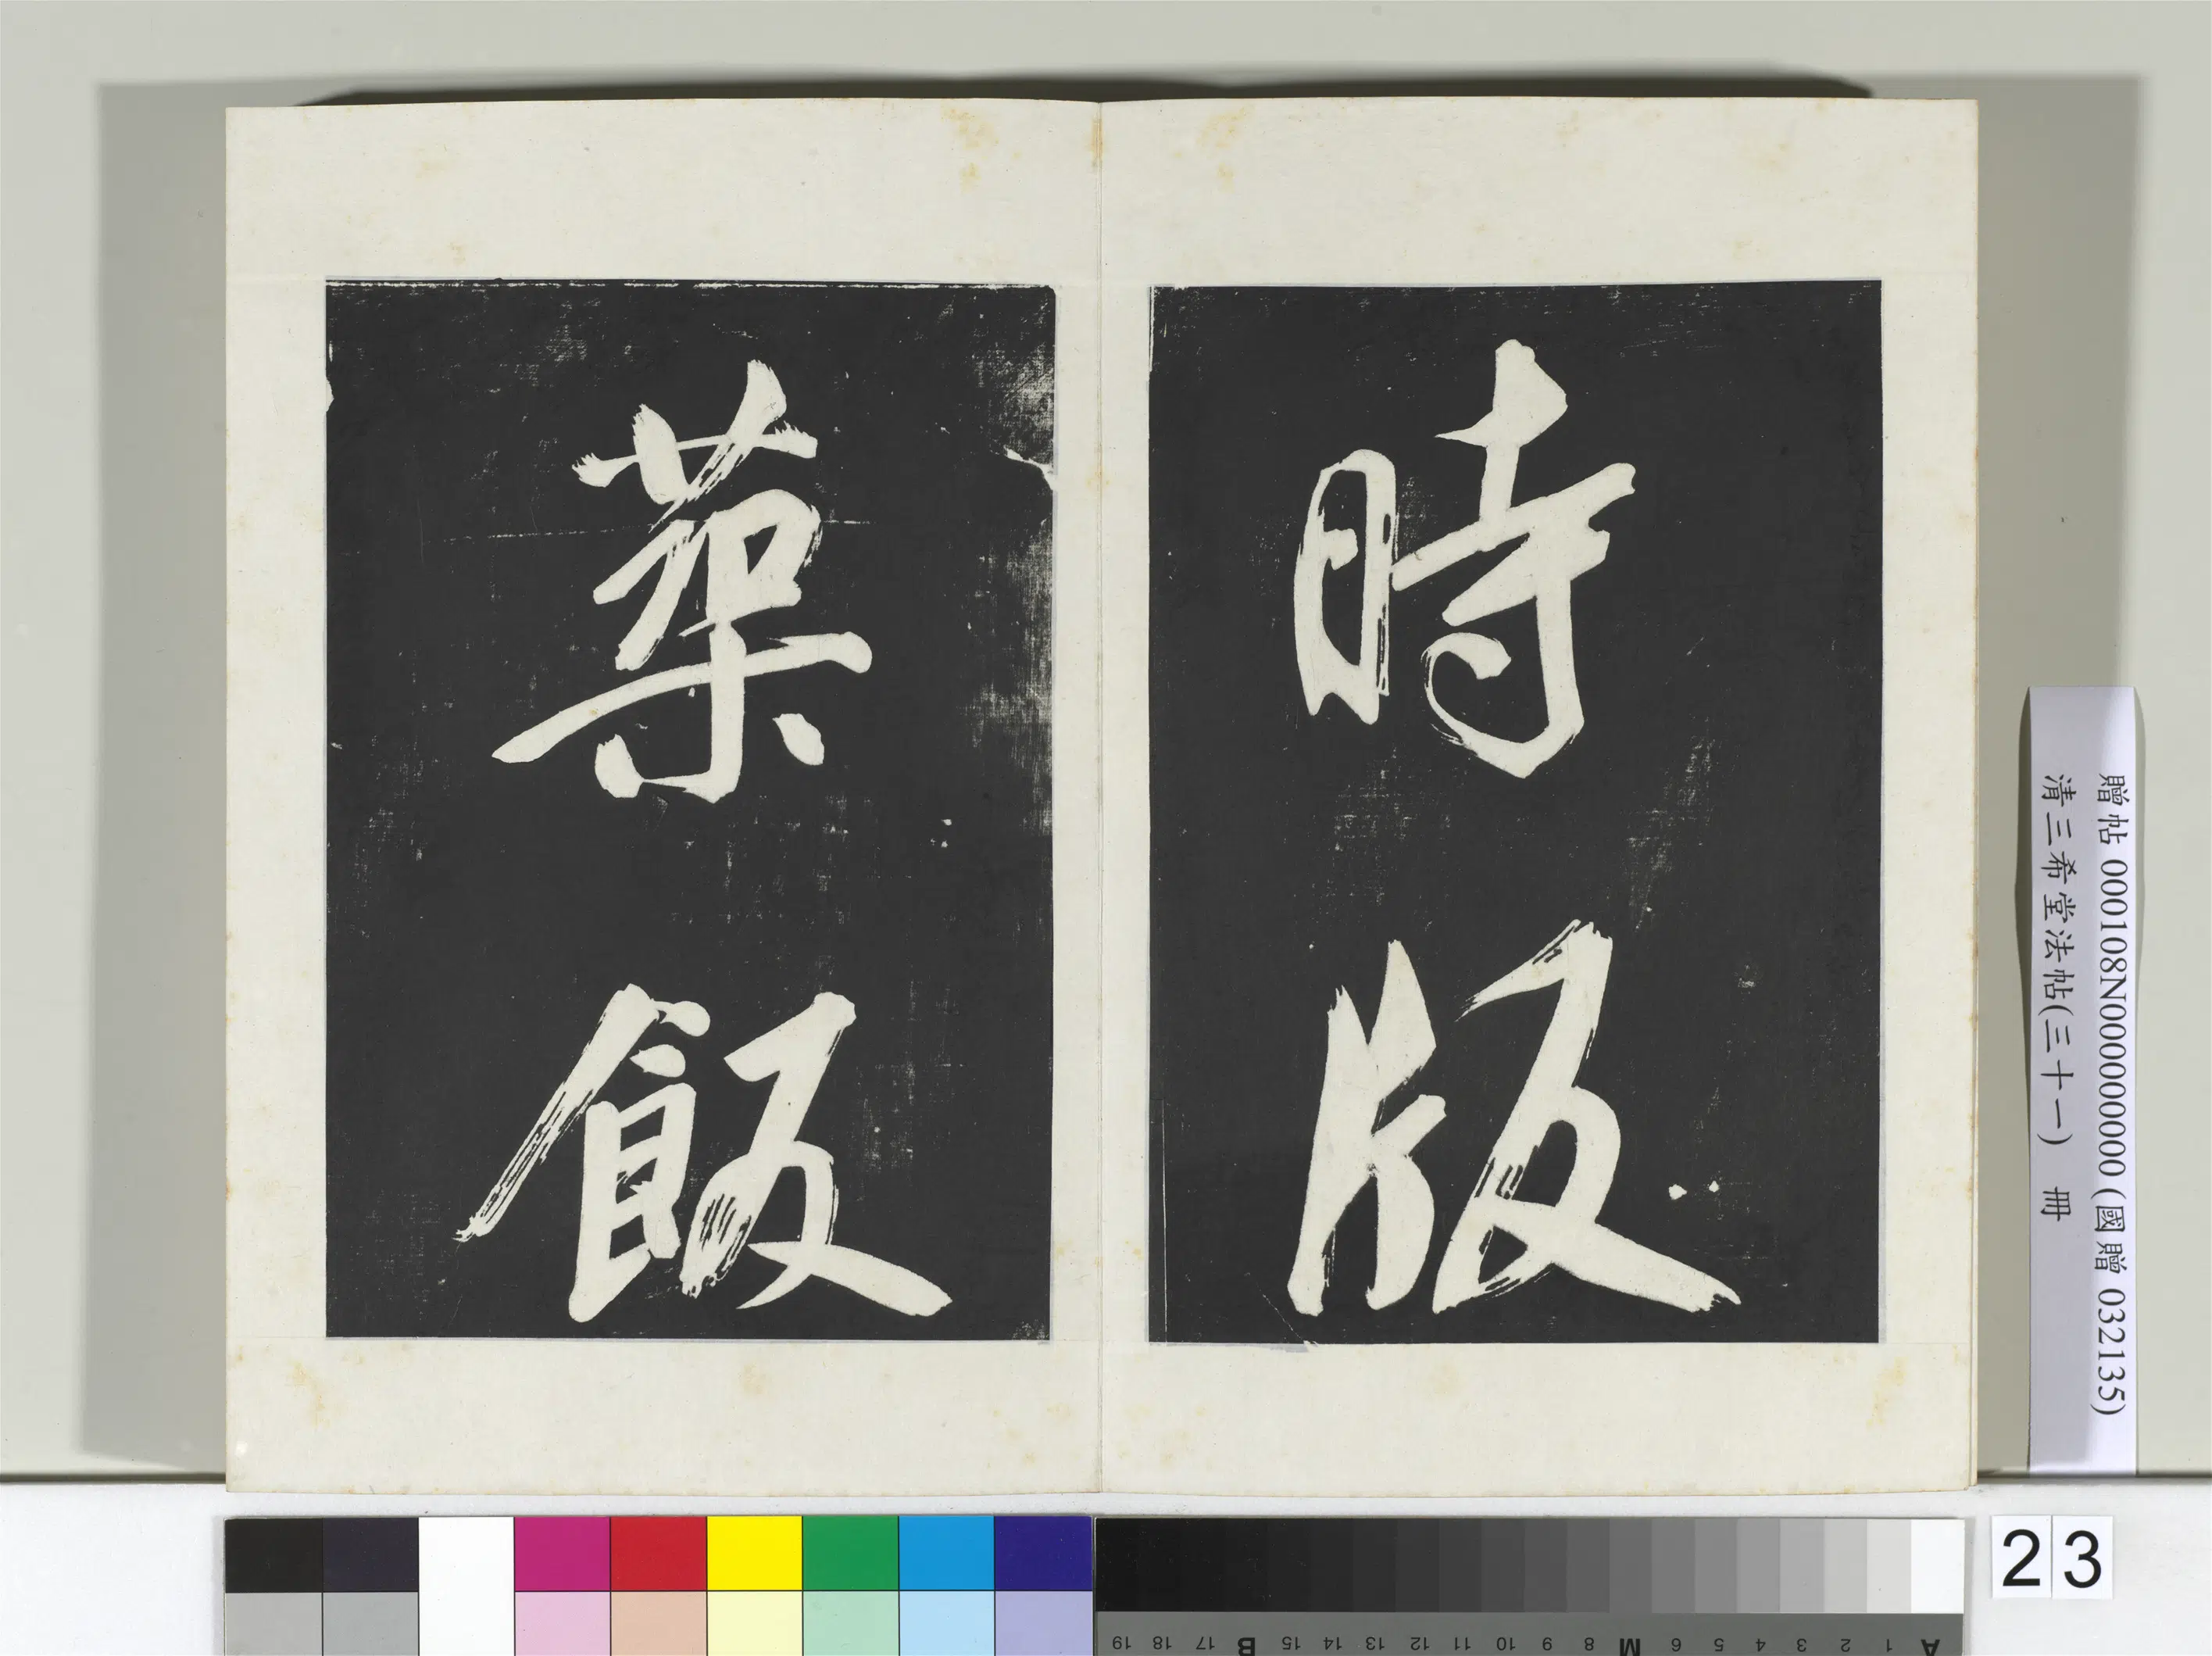 時版
築飯
贈帖 000108N000000000 (國贈 032135)
清三希堂法帖(三十一) 冊
23
A 1 2 3 4 5 6 M 8 9 10 11 12 13 14 15 B 17 18 19